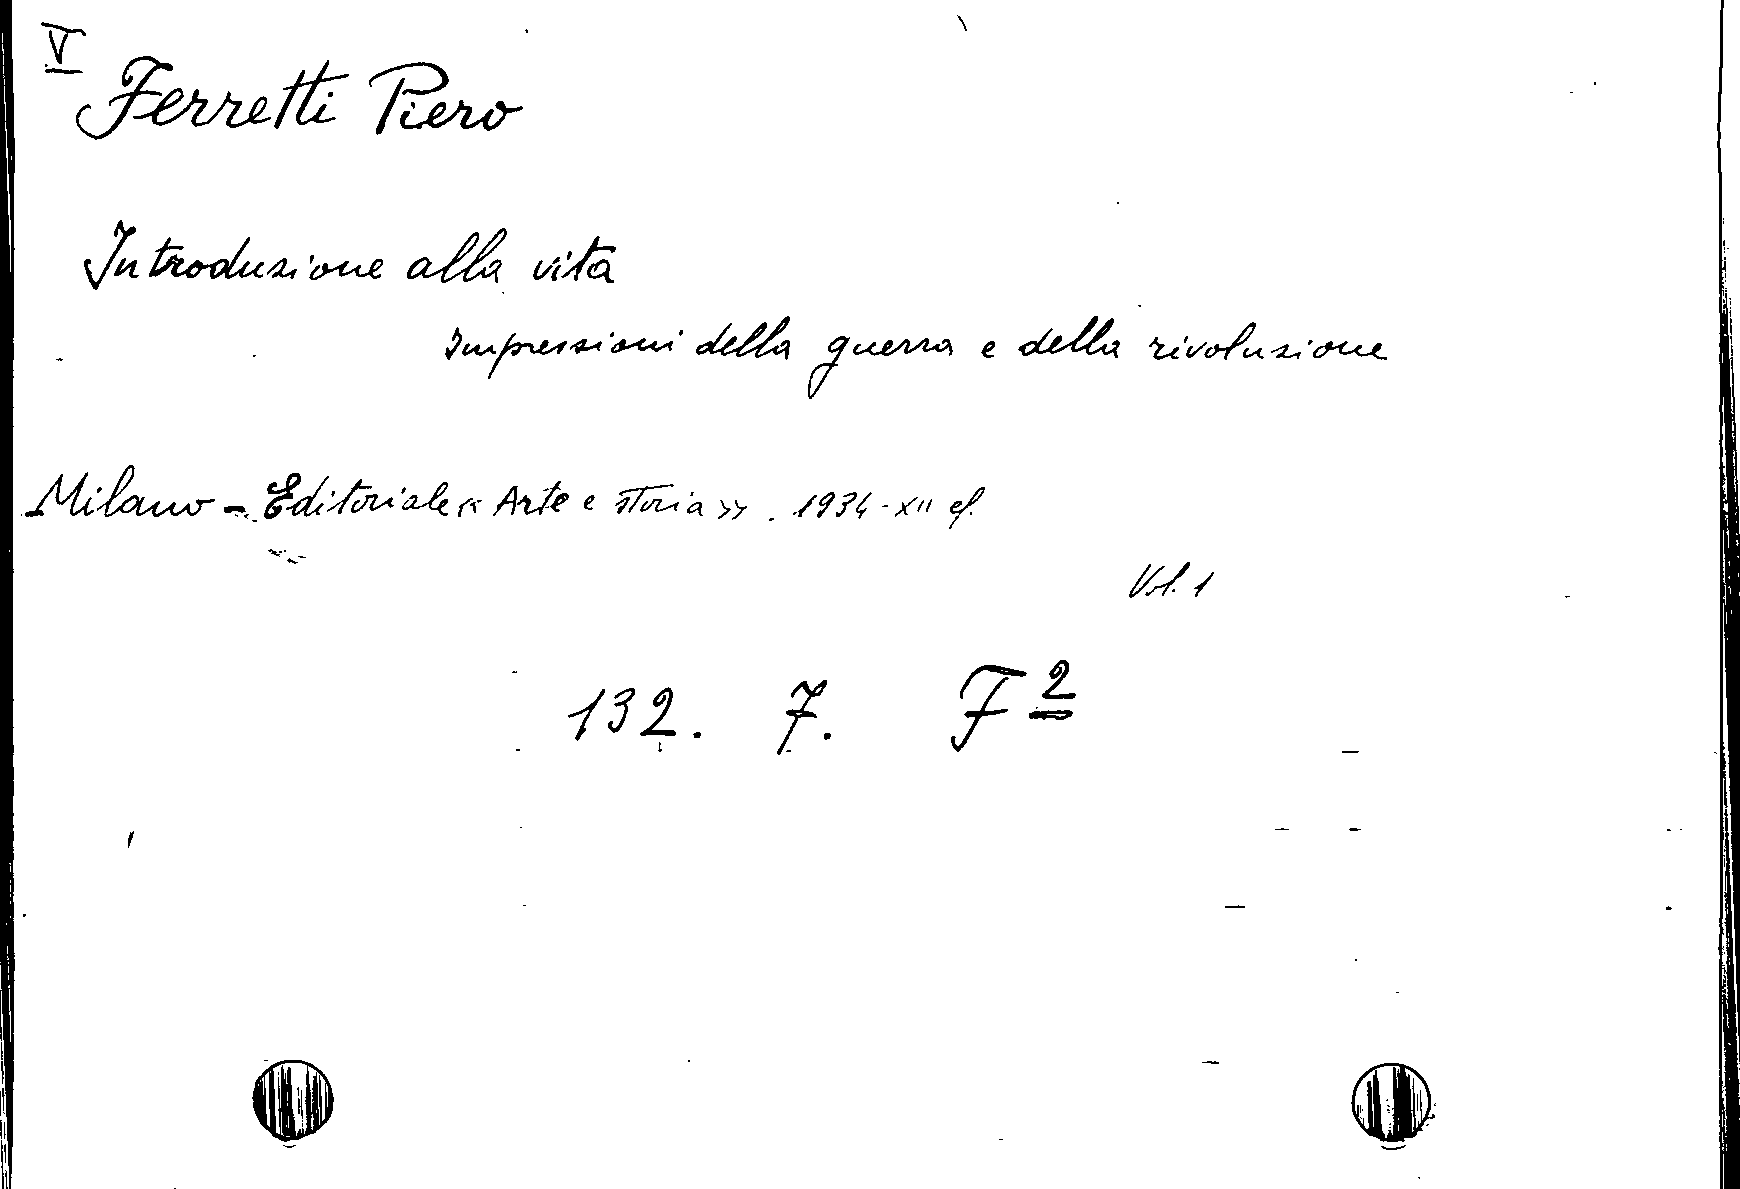 V
Ferretti Piero
Introduzione alla vita
impressioni della guerra e della rivoluzione
Milano - Editoriale « Arte e storia ». 1934 - XII ef.
Vol. 1
132. 7. F 2